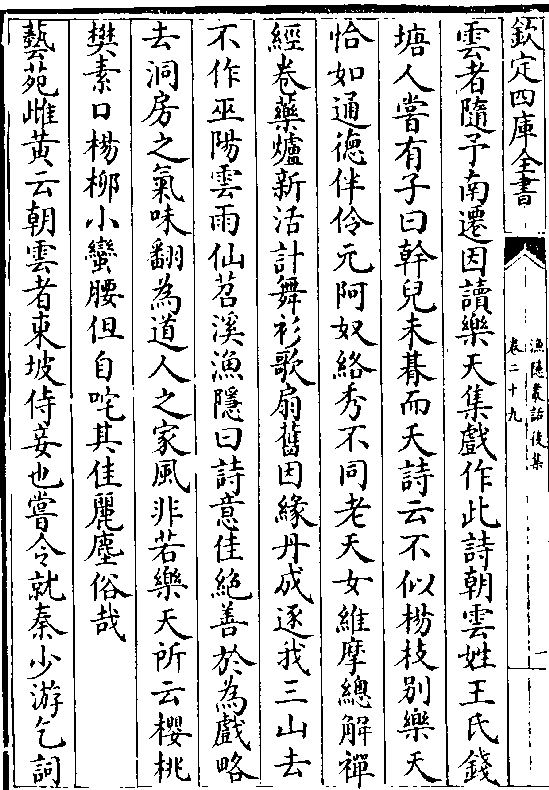 欽定四庫全書
漁隱叢話後集
卷二十九
雲者隨予南遷因讀樂天集戲作此詩朝雲姓王氏錢
塘人嘗有子曰幹兒未朞而夭詩云不似楊枝别樂天
恰如通德伴伶元阿奴絡秀不同老天女維摩總解禪
經卷藥爐新活計舞衫歌扇舊因緣丹成逐我三山去
不作巫陽雲雨仙苕溪漁隱曰詩意佳絶善於為戲略
去洞房之氣味翻為道人之家風非若樂天所云櫻桃
樊素口楊柳小蠻腰但自咤其佳麗塵俗哉
藝苑雌黄云朝雲者東坡侍妾也嘗令就秦少游乞詞